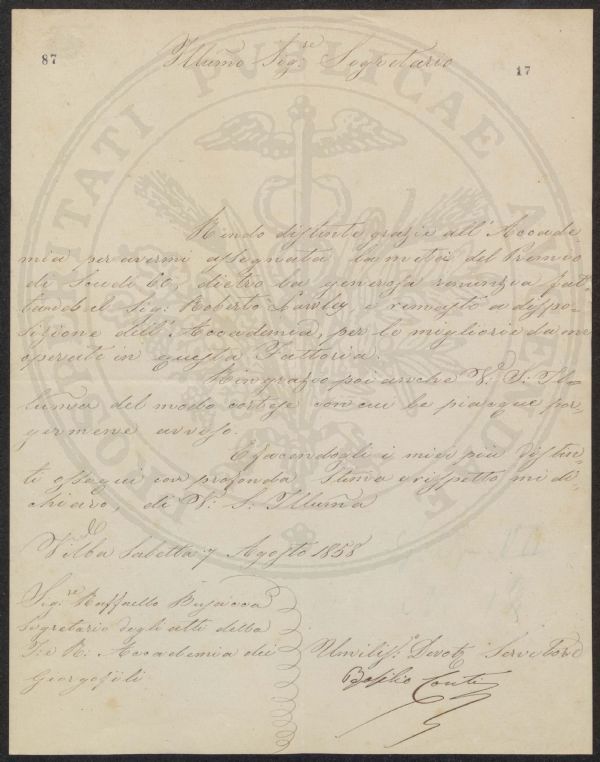 87
17
Illumo Sig.re Segretario
Rendo distinte grazie all'Accade-
mia per avermi assegnata la metà del Premio
di Scudi 60, dietro la generosa renunzia fat-
el Sig: Roberto Lawley, e rimasto a dispo-
sizione dell'Accademia, per le migliorie da me
operati in questa Fattoria.
Ringrazio poi anche V: S: Il-
luma del modo cortese con cui le piacque por-
germene avviso.
E facendogli i miei più distin-
ti ossequi con profonda stima e rispetto mi di-
chiaro, di V: S: Illuma
Villa Saletta 7 Agosto 1858
Sig.re Raffaello Busacca
Segretario degli atti della
I: e R: Accademia dei
Georgofili
Umiliss. Devot Servitore
Basilio Conti
PROSPERITATI PUBLICAE AUGENDAE